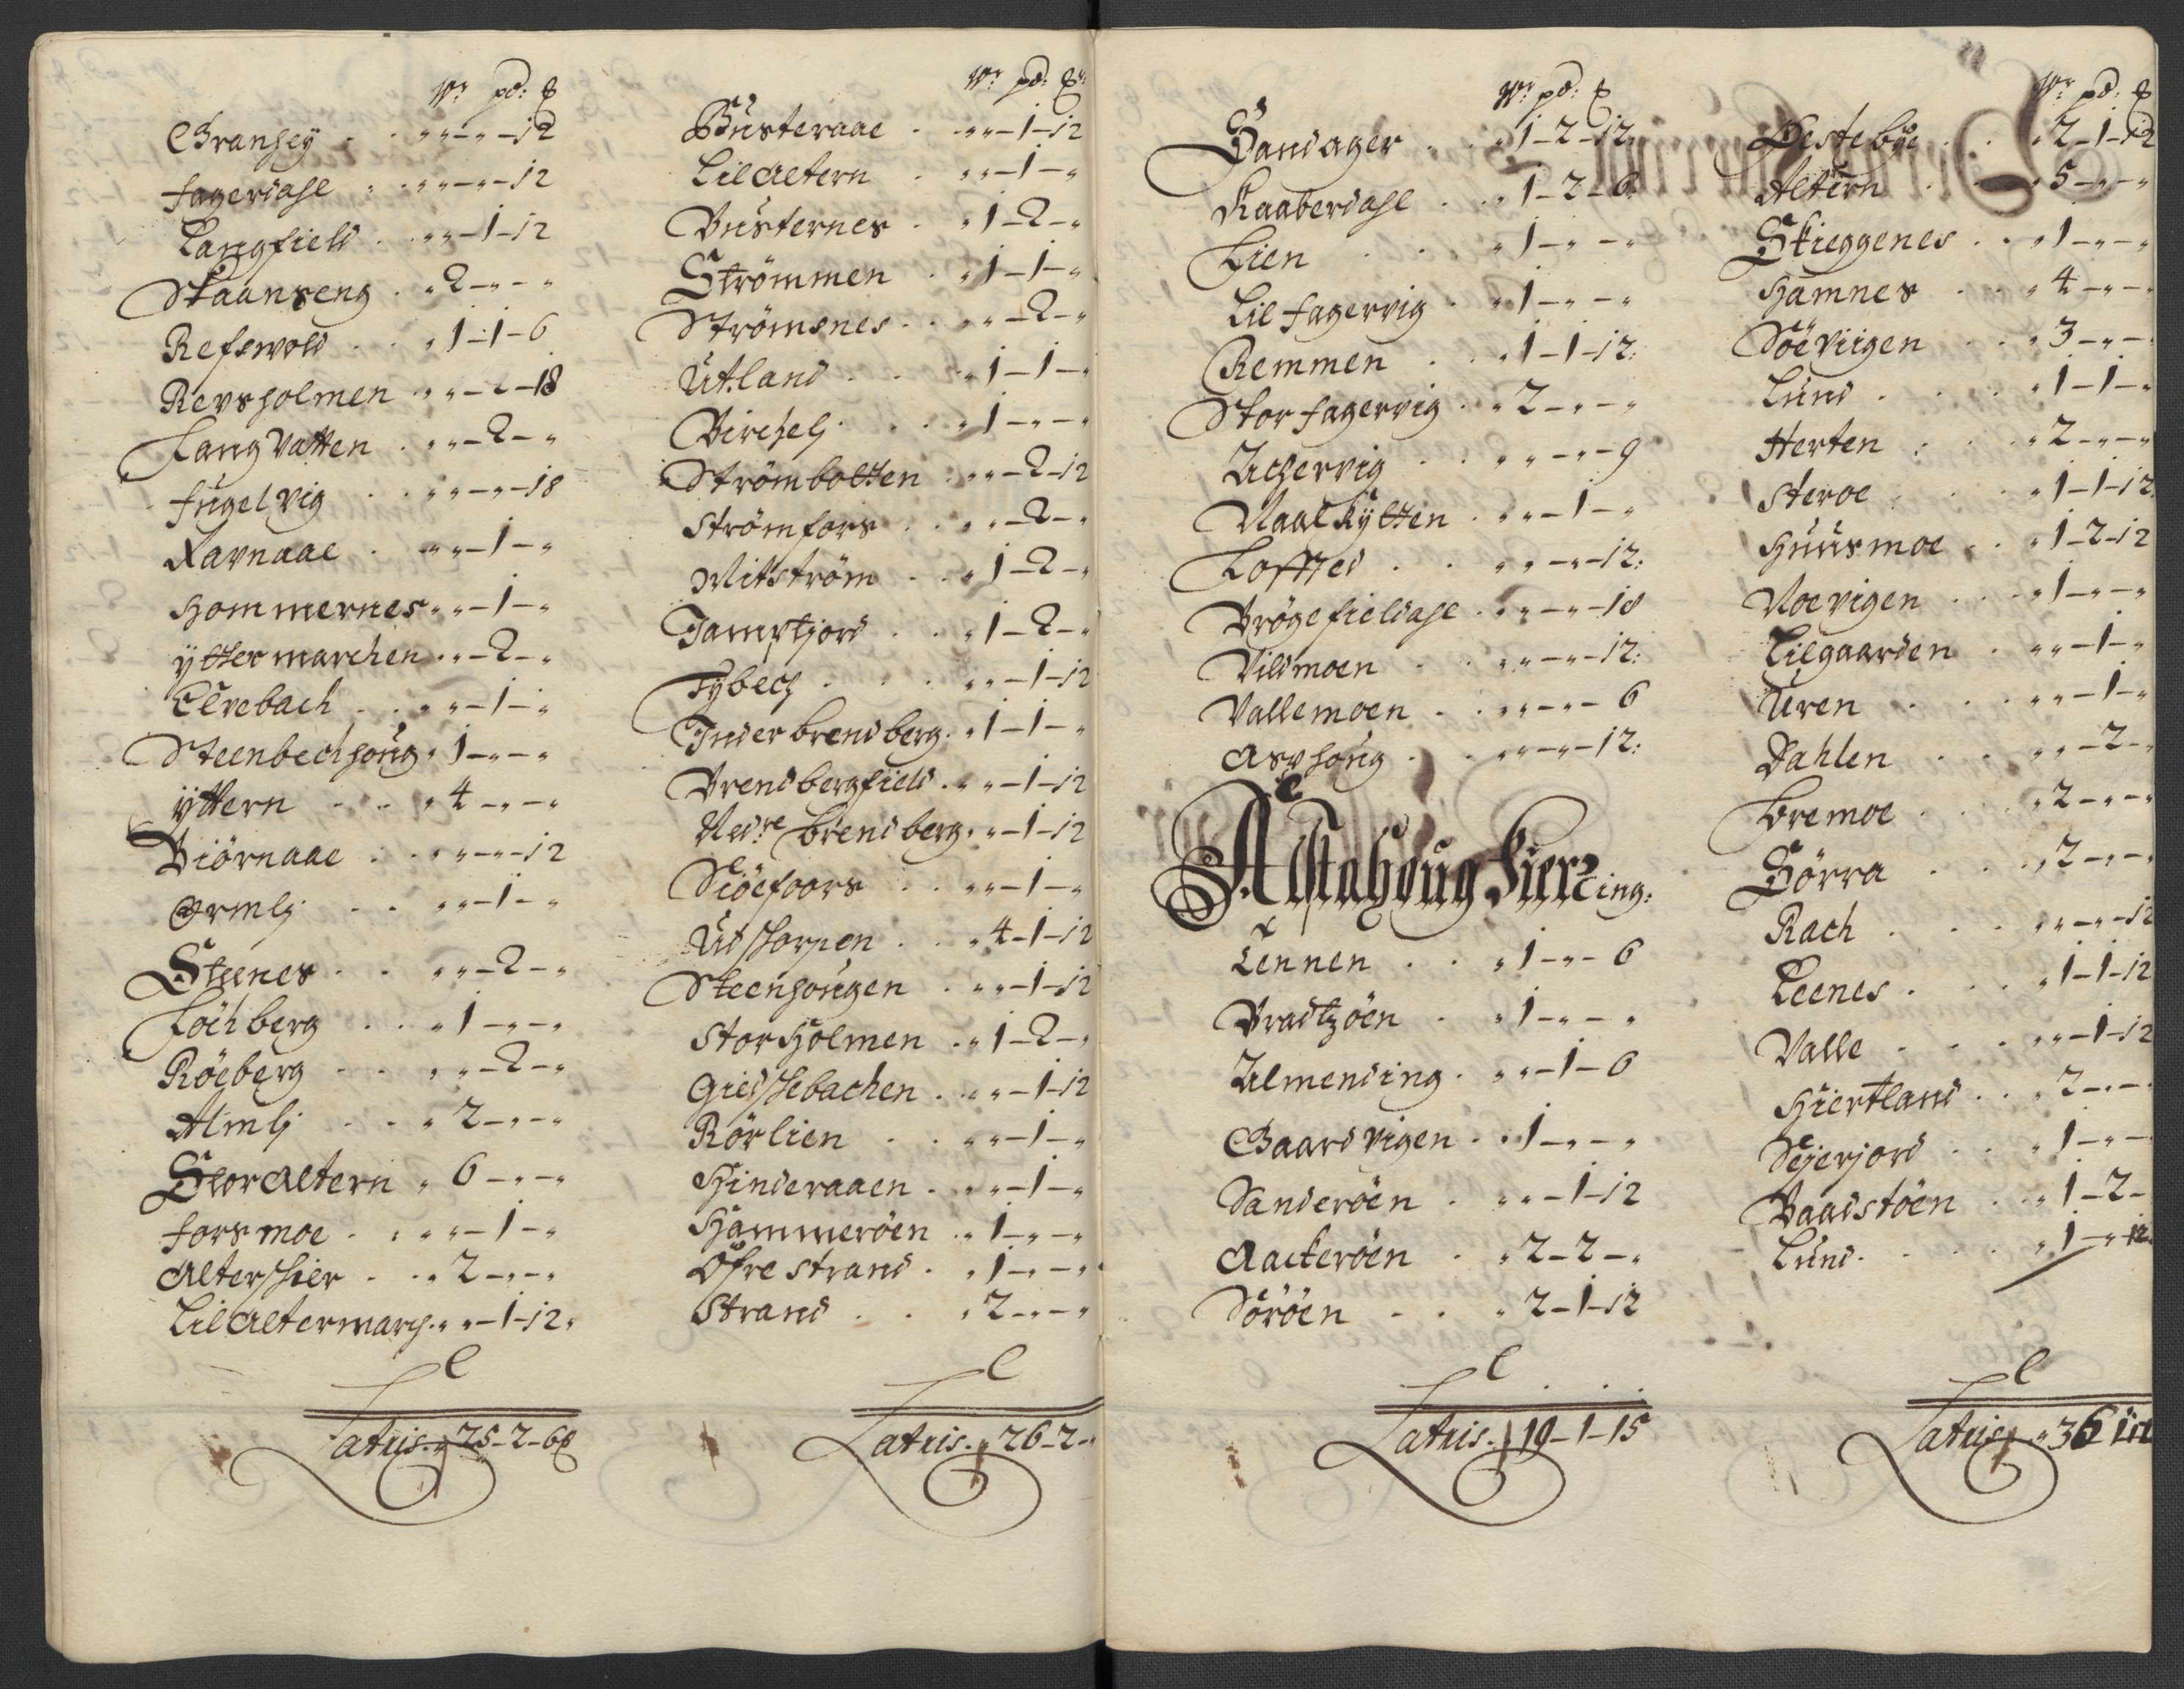 Wr pd: ℔
Granhey . . „ „ - „ - 12
Fagerdahl . „ „ - „ - 12
Langfield . „ „ - 1 - 12
Skaanseng . „ 2 - „ - „
Refswold . . „ 1 - 1 - 6
Revsholmen „ „ - 2 - 18
Langvatten . „ „ - 2 - „
Fugelvig . . „ „ - „ - 18
Ravnaae . „ „ - 1 - „
Hommernes „ „ - 1 - „
Ytter marchen „ „ - 2 - „
Elvebach . . „ „ - 1 - „
Steenbechhoug „ 1 - „ - „
Yttern . . „ 4 - „ - „
Biörnaae . . „ „ - „ - 12
Ormlj . . „ „ - 1 - „
Steenes . . „ „ - 2 - „
Löchberg . . „ 1 - „ - „
Röeberg . . „ „ - 2 - „
Almlj . . „ 2 - „ - „
Stor Altern „ 6 - „ - „
Forsmoe . . „ „ - 1 - „
Alterskier . . „ 2 - „ - „
Lil Altermarch „ „ - 1 - 12 „
Latris. „ 25 - 2 - 6 ℔
Wr pd: ℔
Busteraae . „ „ - 1 - 12
Lil Altern . „ „ - 1 - „
Busternes . „ 1 - 2 - „
Strömmen . „ 1 - 1 - „
Strömsnes . . „ „ - 2 - „
Utland . . „ 1 - 1 - „
Birchelj . . „ 1 - „ - „
Strømbotten . „ „ - 2 - 12
Strømfors . . „ „ - 2 - „
Mitström . . „ 1 - 2 - „
Jamtjord . . „ 1 - 2 - „
Tybech . . . „ „ - 1 - 12
Inder brendberg . „ 1 - 1 - „
Brendbergfield . „ „ - 1 - 12
Nedre brendberg . „ „ - 1 - 12
Siöefoors . . „ „ - 1 - „
Udskorpen . . „ 4 - 1 - 12
Steenhougen . „ „ - 1 - 12
Storholmen . „ 1 - 2 - „
Gieldskebachen . „ „ - 1 - 12
Rörlien . . „ „ - 1 - „
Hinderaaen . „ „ - 1 - „
Hammeröen . „ 1 - „ - „
Öfre Strand . „ 1 - „ - „
Strand . . „ 2 - „ - „
Latris. „ 26 - 2 - „
Wr pd: ℔
Sandager . . „ 1 - 2 - 12:
Raaberdahl . „ 1 - 2 - 6
Lien . . „ 1 - „ - „
Lil Fagervig . „ 1 - „ - „
Remmen . . „ 1 - 1 - 12:
Stor Fagervig . „ 2 - „ - „
Uchervig . . „ „ - „ - 9
Naalkylten . „ „ - 1 - „
Lofted . . „ „ - „ - 12:
Brögefieldahl . „ „ - „ - 18
Vildmoen . . „ „ - „ - 12:
Vallemoen . . „ „ - „ - 6
Asphoug . . „ „ - „ - 12:
Alstahoug Fierding:
Tennen . . „ 1 - „ - 6
Bradtzöen . „ 1 - „ - „
Almending . „ „ - 1 - 6
Gaardvigen . „ 1 - „ - „
Sanderöen . „ „ - 1 - 12
Aackeröen . „ 2 - 2 - „
Söröen . . „ 2 - 1 - 12
Latris. 19 - 1 - 15
Wr pd: ℔
Bestebye . . „ 2 - 1 - 12
Altern . . „ 5 - „ - „
Skieggenes . . „ 1 - „ - „
Hamnes . . „ 4 - „ - „
Söeviigen . . „ 3 - „ - „
Lund . . . „ 1 - 1 - „
Herten . . „ 2 - „ - „
Steroe . . „ 1 - 1 - 12
Huusmoe . . „ 1 - 2 - 12
Noevigen . . „ 1 - „ - „
Lilgaarden . „ „ - 1 - „
Uren . . „ „ - 1 - „
Dahlen . . „ „ - 2 - „
Bremoe . . „ 2 - „ - „
Sörra . . . „ 2 - „ - „
Rach . . . „ „ - „ - 12
Leenes . . . „ 1 - 1 - 12
Valle . . . „ „ - 1 - 12
Hiertland . . „ 2 - „ - „
Sejerjord . . „ 1 - „ - „
Baadstöen . . „ 1 - 2 - „
Lund . . . „ 1 - „ - 12
Latris. „ 36